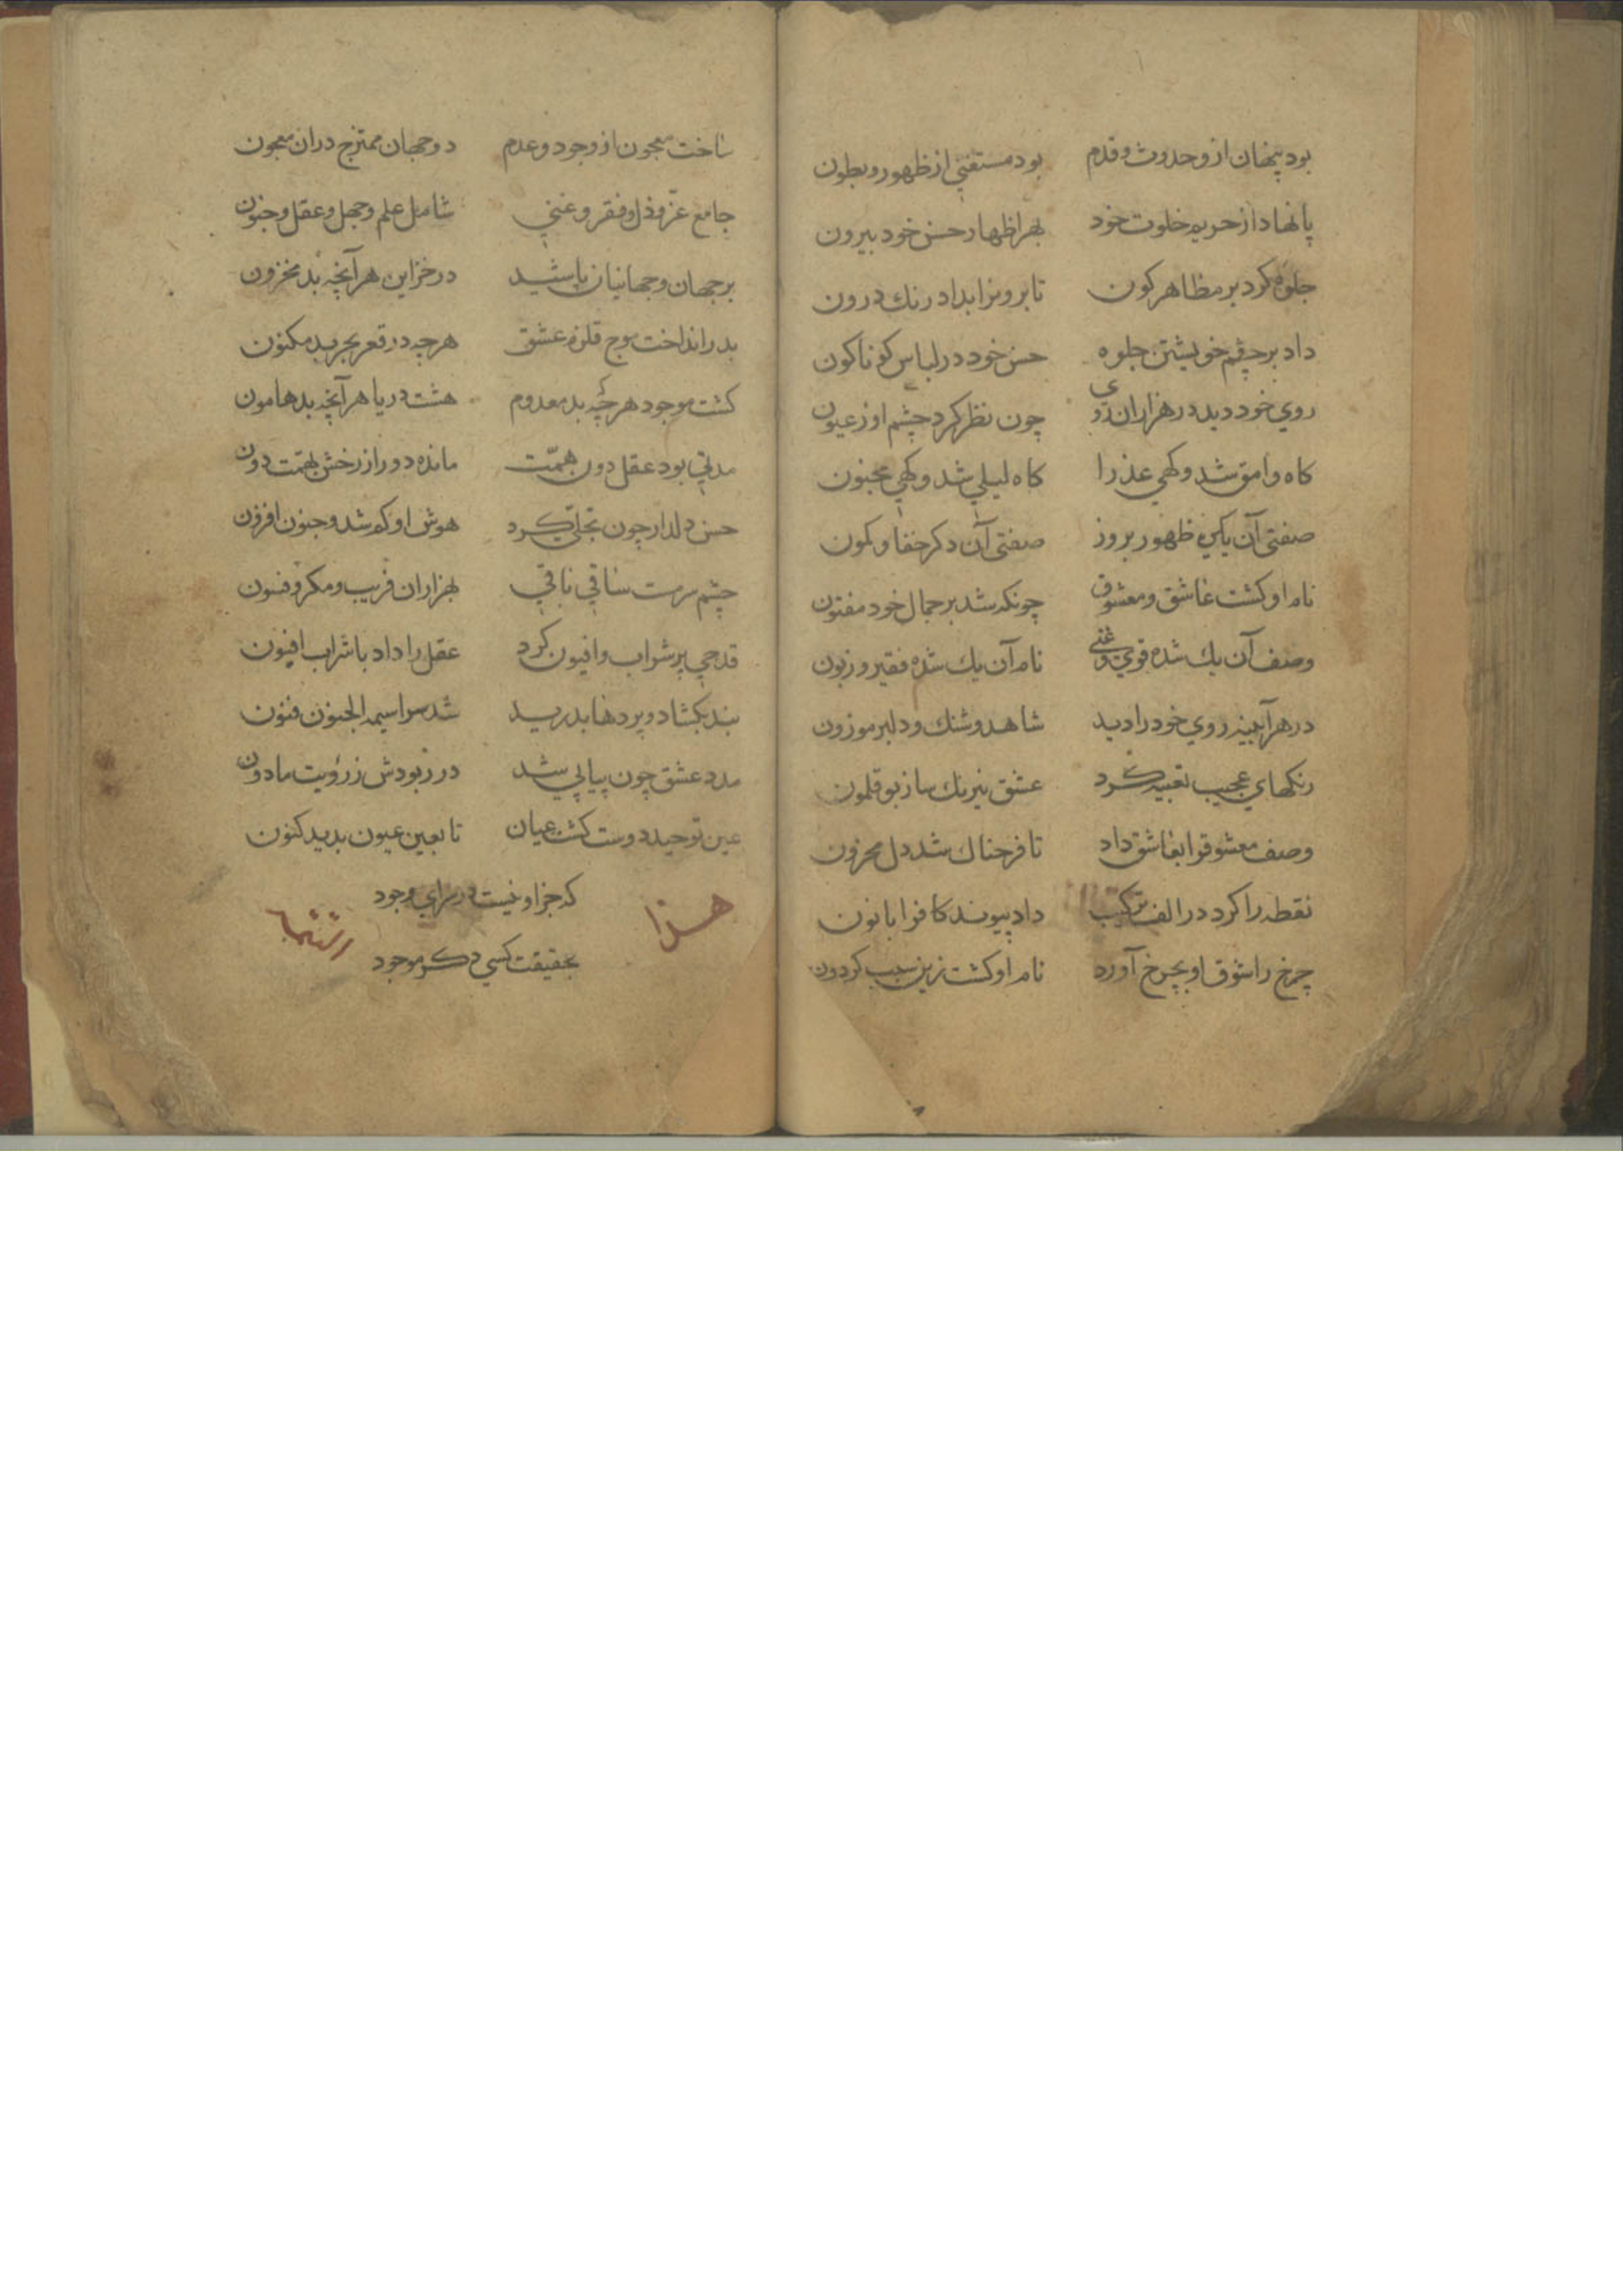 بود پنهان از وحدوث وقدم بود مستغني از ظهور وبطون
پا نهاد از حريم خلوت خود بهر اظهار حسن خود بيرون
جلوه كرد بر مظاهر كون تا برونرا بداد رنك درون
داد بر چشم خويشتن جلوه حسن خود در لباس كوناكون
روي خود ديد در هزاران روي چون نظر كرد چشم او ز عيون
كاه وامق شد وكهي عذرا كاه ليلي شد وكهي مجنون
صفتي آن يكي ظهور بروز صفتي آن دكر خفا وكمون
نام او كشت عاشق ومعشوق چونكه شد بر جمال خود مفتون
وصف آن يك شده قوي وغني نام آن يك شده فقير وزبون
در هر آيينه روي خود را ديد شاهد وشنك ودلبر موزون
رنكهاي عجيب تعبيه كرد عشق نيرنك ساز بوقلمون
وصف معشوقرا بعاشق داد تا فرحناك شد دل محزون
نقطه را كرد در الف تركيب داد پيوند كافرا با نون
چرخ را شوق او بچرخ آورد نام او كشت زين سبب كردون
ساخت معجون از وجود وعدم دو جهان ممتزج دران معجون
جامع عز وذل وفقر وغني شامل علم وجهل وعقل وجنون
بر جهان وجهانيان پاشيد در خزاين هر آنچه بد مخزون
بدر انداخت موج قلزم عشق هرچه در قعر بحر بد مكنون
كشت موجود هرچه بد معدوم هشت دريا هر آنچه بد هامون
مدتي بود عقل دون همت مانده دور از رخش بهمت دون
حسن دلدار چون تجلي كرد هوش او كم شد وجنون افزون
چشم سرمست ساقي باقي بهزاران فريب ومكر وفسون
قدحي پر شراب وافيون كرد عقل را داد با شراب افيون
بند بكشاد وپردها بدريد شد سراسيمه الجنون فنون
مدد عشق چون پياپي شد در ربودش ز رؤيت ما دون
عين توحيد دوست كشت عيان تا بعين عيون بديد كنون
كه جز او نيست در سراي وجود
هذا
بحقيقت كسي دكر موجود